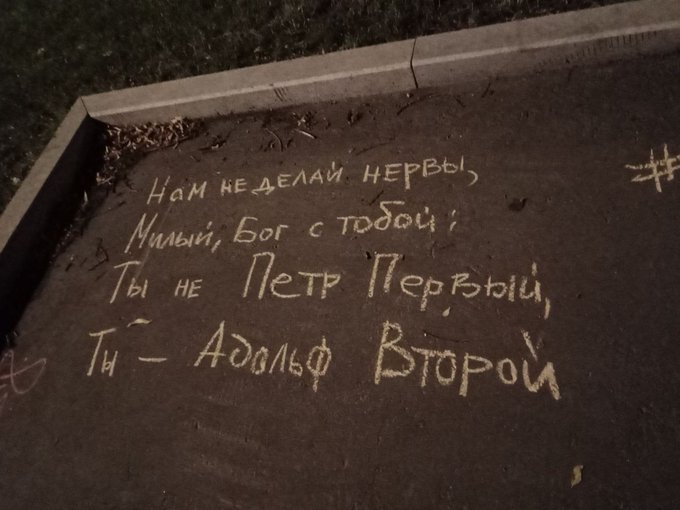 Нам не делай нервы,
Милый, Бог с тобой:
Ты не Петр Первый,
Ты — Адольф Второй
#